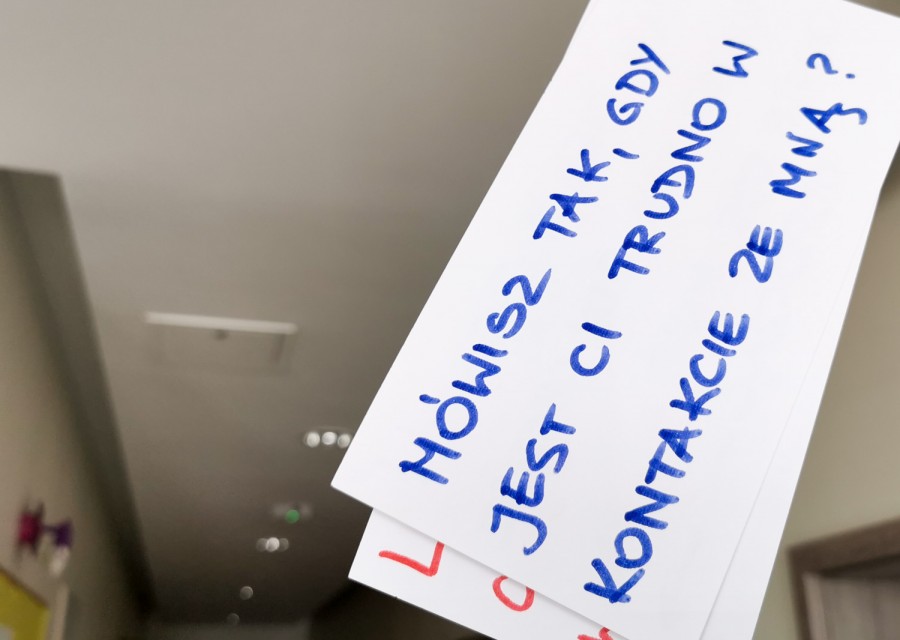 MÓWISZ TAK, GDY
JEST CI TRUDNO W
KONTAKCIE ZE MNĄ?